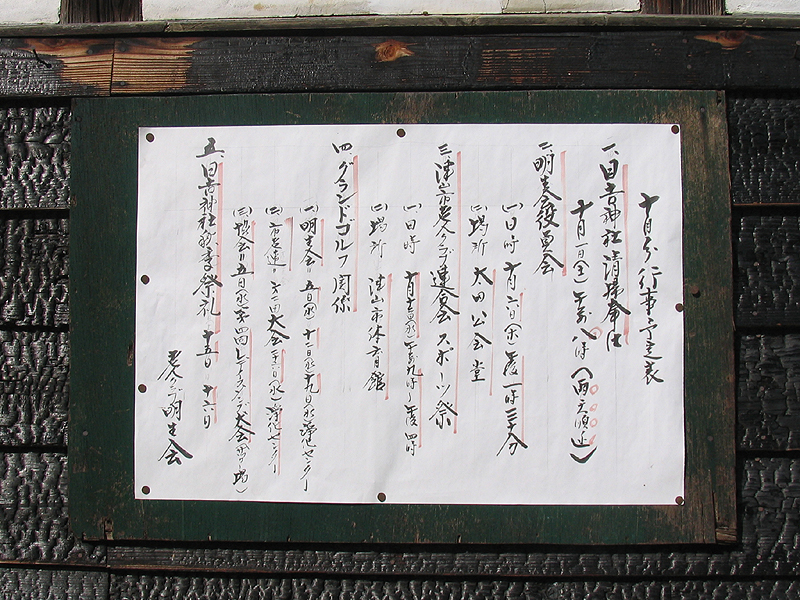 十月分行事予定表
一、日吉神社清掃奉仕
十月一日(金)午前八時(雨天順延)
二、明生会役員会
(一)日時 十月二日(木)午後一時三十分
(二)場所 太田公会堂
三、津山市老人クラブ連合会スポーツ祭
(一)日時 十月十三日(水)午前九時〜午後四時
(二)場所 津山市体育館
四、グランドゴルフ関係
(一)明生会= 五日(水) 十二日(水)十九日(水)浄化センター
(二)市老連= 大会 二十六日(水)浄化センター
(三)協会= 五日(水) 大会
五、日吉神社秋季祭礼 十五日 十六日
老人クラブ明生会